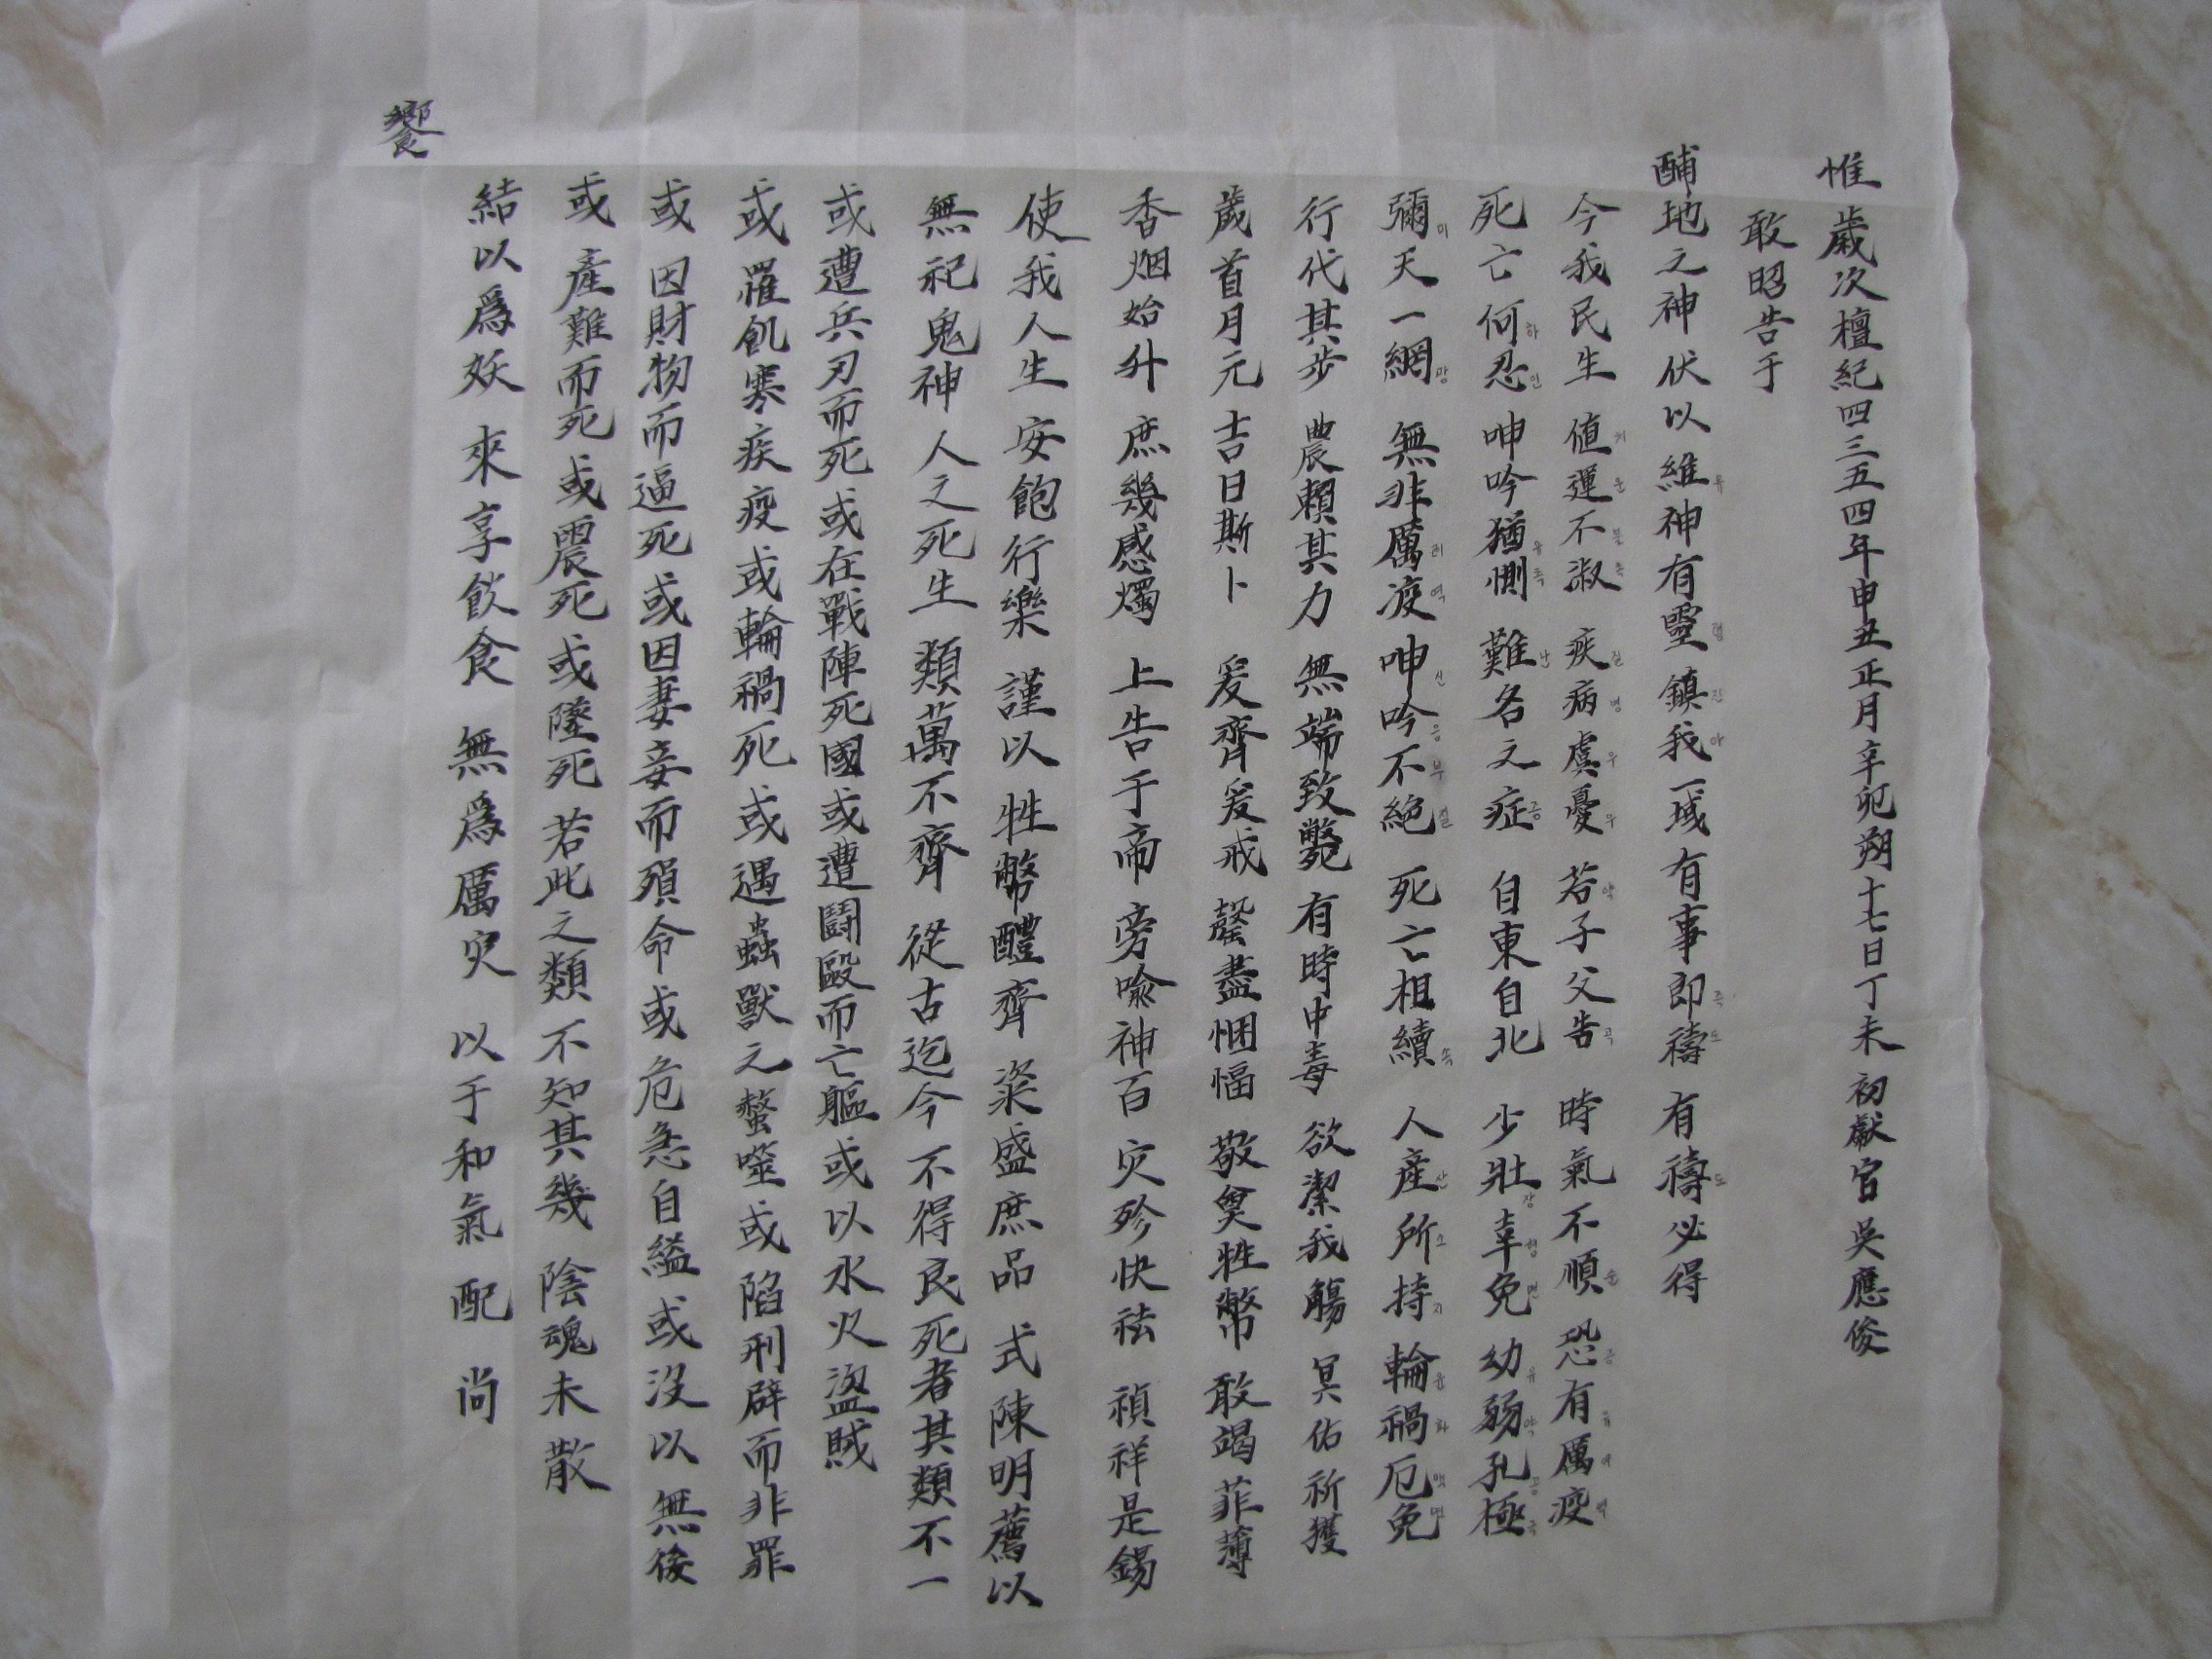 惟 歲次檀紀四三五四年申丑正月辛卯朔十七日丁未 初獻官 吳應俊
敢昭告于
酺地之神 伏以 維神有靈 鎭我一域 有事即禱 有禱必得
今我民生 値運不淑 疾病虞憂 若子父告 時氣不順 恐有厲疫
死亡何忍 呻吟猶惻 難名之症 自東自北 少壯幸免 幼弱孔極
彌天一網 無非厲疫 呻吟不絕 死亡相續 人產所持 輪禍厄免
行代其步 農賴其力 無端致斃 有時中毒 欲潔我觴 冥佑祈獲
歲首月元 吉日斯卜 爰齊爰戒 罄盡悃愊 敬奠牲幣 敢竭菲薄
香烟始升 庶幾感燭 上告于帝 旁喩神百 灾殄快祛 禎祥是錫
使我人生 安飽行樂 謹以 牲幣醴齊 粢盛庶品 式陳明薦以
無祀鬼神 人之死生 類萬不齊 從古迄今 不得良死者其類不一
或遭兵刃而死或在戰陣死國或遭鬪毆而亡軀或以水火盜賊
或罹飢寒疾疫或輪禍死或遇蟲獸之螫噬或陷刑辟而非罪
或因財物而逼死或因妻妾而殞命或危急自縊或沒以無後
或產難而死或震死或墜死若此之類不知其幾 陰魂未散
結以爲妖 來享飮食 無爲厲灾 以于和氣 配 尚
饗